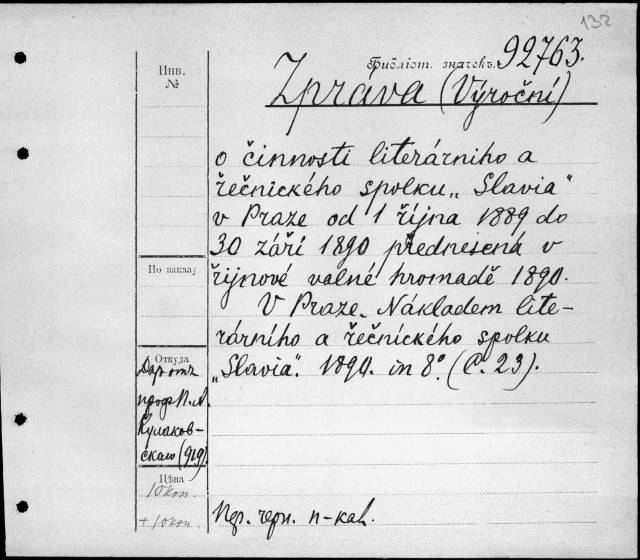 132
Инв.
№
Библіот. значекъ. 92763.
Zpráva (Výroční)
o činnosti literárniho a
řečnického spolku „Slavia“
v Praze od 1 října 1889 do
30 září 1890 přednesená v
řijnové valné hromadě 1890.
V Praze. Nákladem lite-
rárního a řečnického spolku
„Slavia“. 1890. in 8° (C. 23).
По заказу
Откуда
Дар отъ
проф. П. А.
Кулаков-
скаго (919)
Цѣна
10 коп.
+ 10 коп.